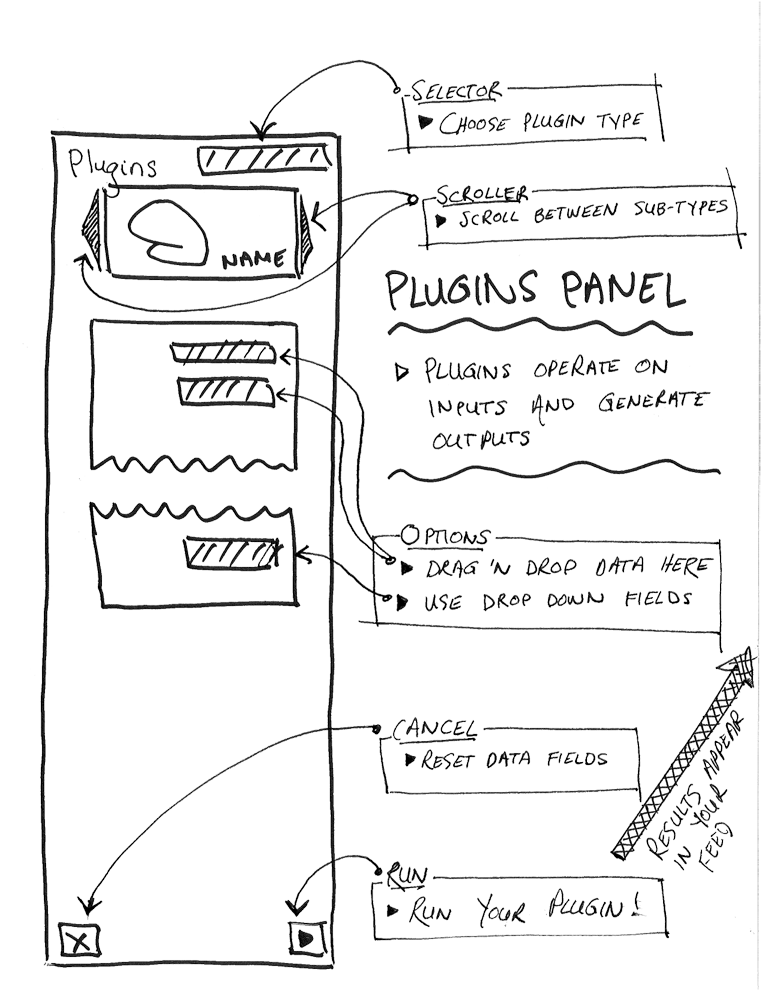 SELECTOR
CHOOSE PLUGIN TYPE
Plugins
SCROLLER
SCROLL BETWEEN SUB-TYPES
NAME
PLUGINS PANEL
PLUGINS OPERATE ON
INPUTS AND GENERATE
OUTPUTS
OPTIONS
DRAG 'N DROP DATA HERE
USE DROP DOWN FIELDS
CANCEL
RESET DATA FIELDS
RESULTS APPEAR
IN YOUR
FEED
RUN
RUN YOUR PLUGIN!
X